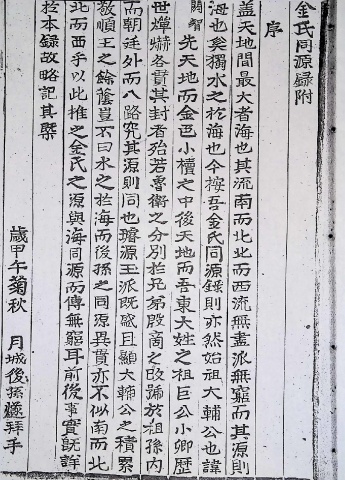 金氏同源錄附
序
盖天地間最大者海也其流南而北北而西流無盡派無窮而其源則
海也奚獨水之於海也今按吾金氏同源錄則亦然始祖大輔公也諱
閼智先天地而金邑小櫝之中後天地而吾東大姓之祖巨公小卿歷
世燀爀各貫其封者殆若魯衛之分別於兄弟殷商之改號於祖孫內
而朝廷外而八路究其源則同也璿源玉派既盛且顯大輔公之積累
敬順王之餘蔭豈不曰水之於海而後孫之同源異貫亦不似南而北
北而西乎以此推之金氏之源與海同源而傳無窮耳前後事實既詳
於本錄故略記其槩
歲甲午菊秋 月城後孫 拜手